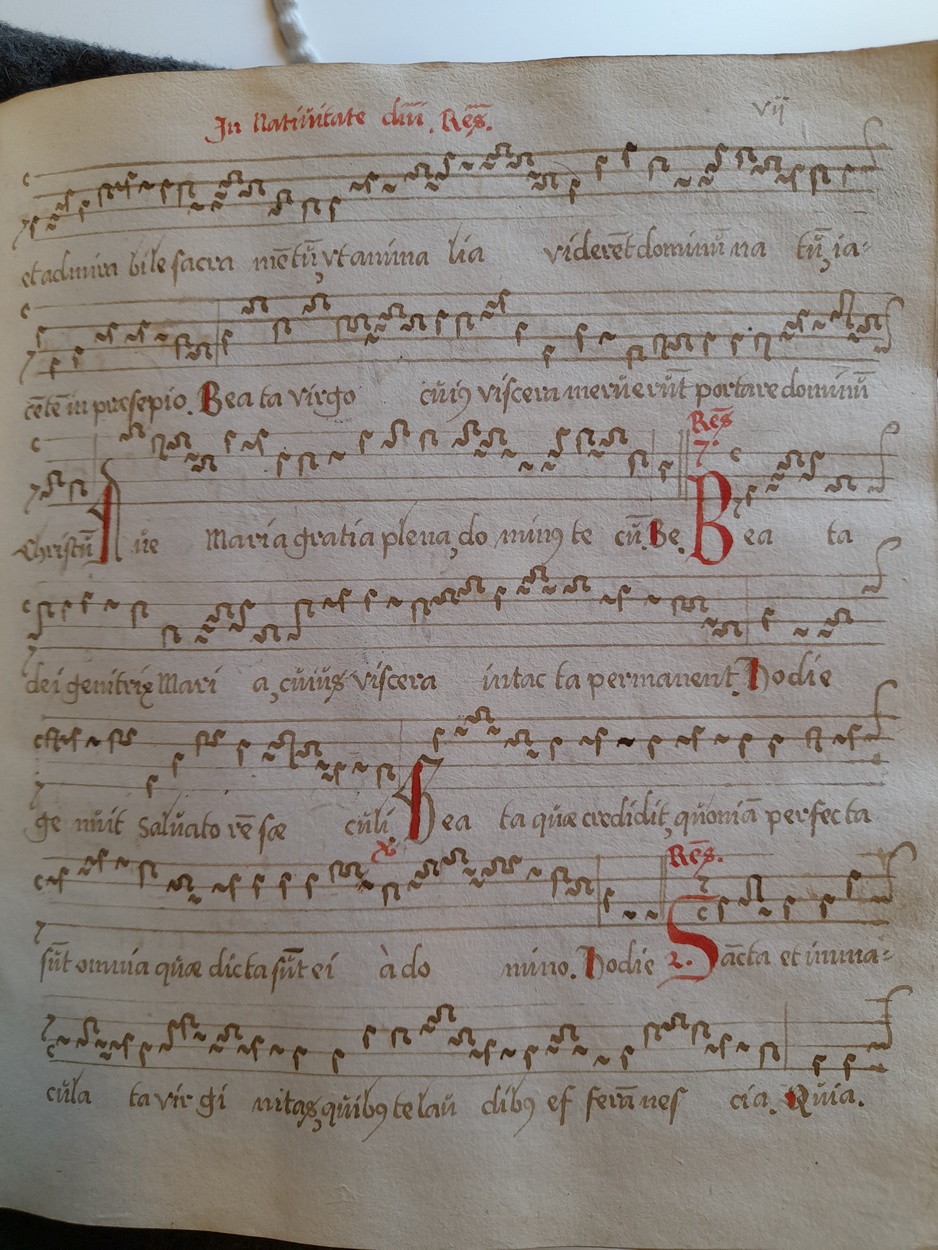 In Natiuitate dn̄i. Res̄.
vij
et admira bile sacra mētū, vt anima lia viderēt dominū na tū, ia-
cētē in præsepio. Bea ta virgo cuiꝰ viscera meruerūt portare dominū
Res̄
7.
Christū Aue Maria gratia plena, do minꝰ te cū. Be. Bea ta
dei genitrix Mari a, cuiuš viscera intac ta permanent. Hodie
ge nuit Saluato rē sæ culi. Bea ta quæ credidit, quoniā perfec ta
℣
Res̄.
sūt omnia quæ dicta sūt ei à do mino. Hodie 2. Sācta et imma-
cula ta vir gi nitas, quibꝰ te lau dibꝰ ef ferā nes cia. Quia.